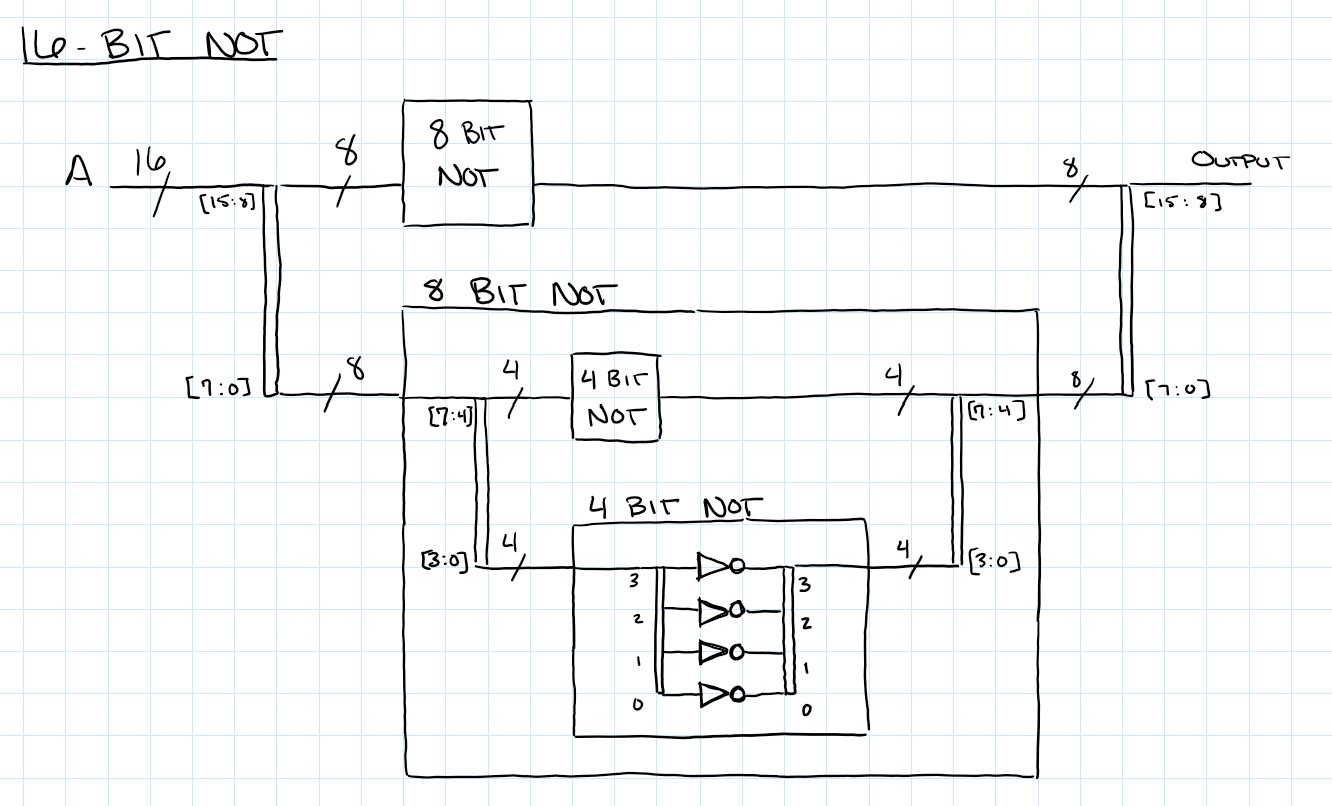 16-BIT NOT
A 16 8 8 BIT NOT 8 OUTPUT
[15:8] [15:8]
8 BIT NOT
[7:0] 8 4 4 BIT NOT 4 8 [7:0]
[7:4] [7:4]
4 BIT NOT
[3:0] 4 4 [3:0]
3 3
2 2
1 1
0 0